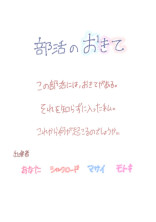 部活のおきて
この部活には、おきてがある。
それを知らずに入った私。
これから何が起こるのでしょうか。
出演者
あなた シャクロード マサイ モトキ